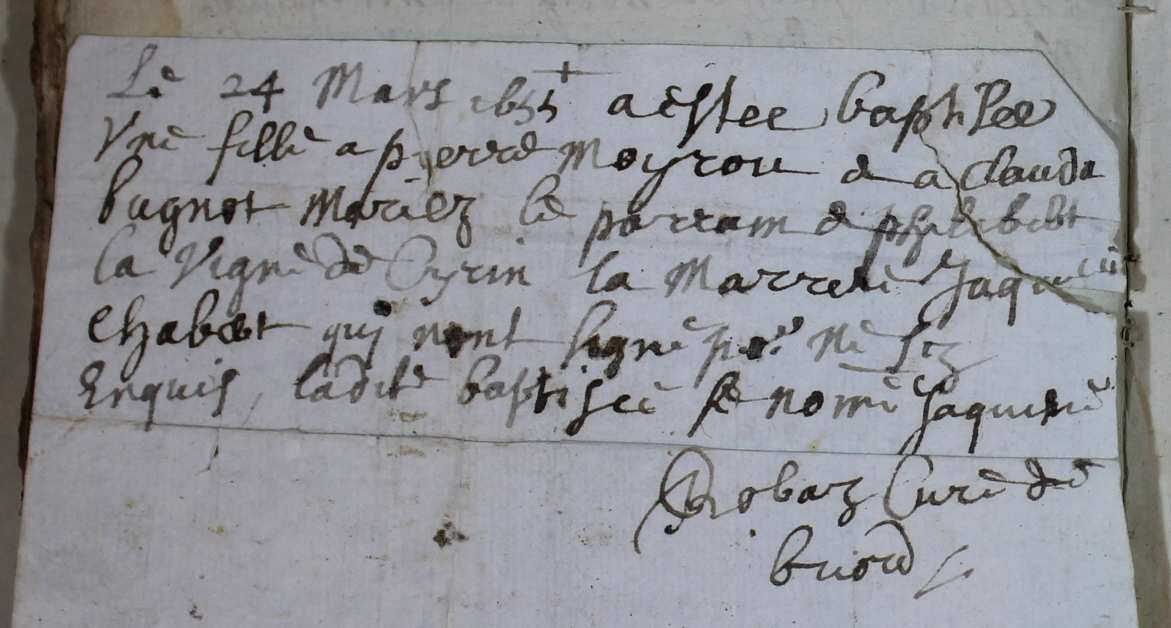 Le 24 Mars 1655 a estee baptisee
Une fille a pierre Moyrou & a Clauda
bugnot Mariez le parram & philibert
la Vigne de Cyrin la Marrene Jaqueline
Chabert qui nont signe por ne scz
Enquis, ladite baptisee se nomme Jaquene
Robaz Cure de
briord